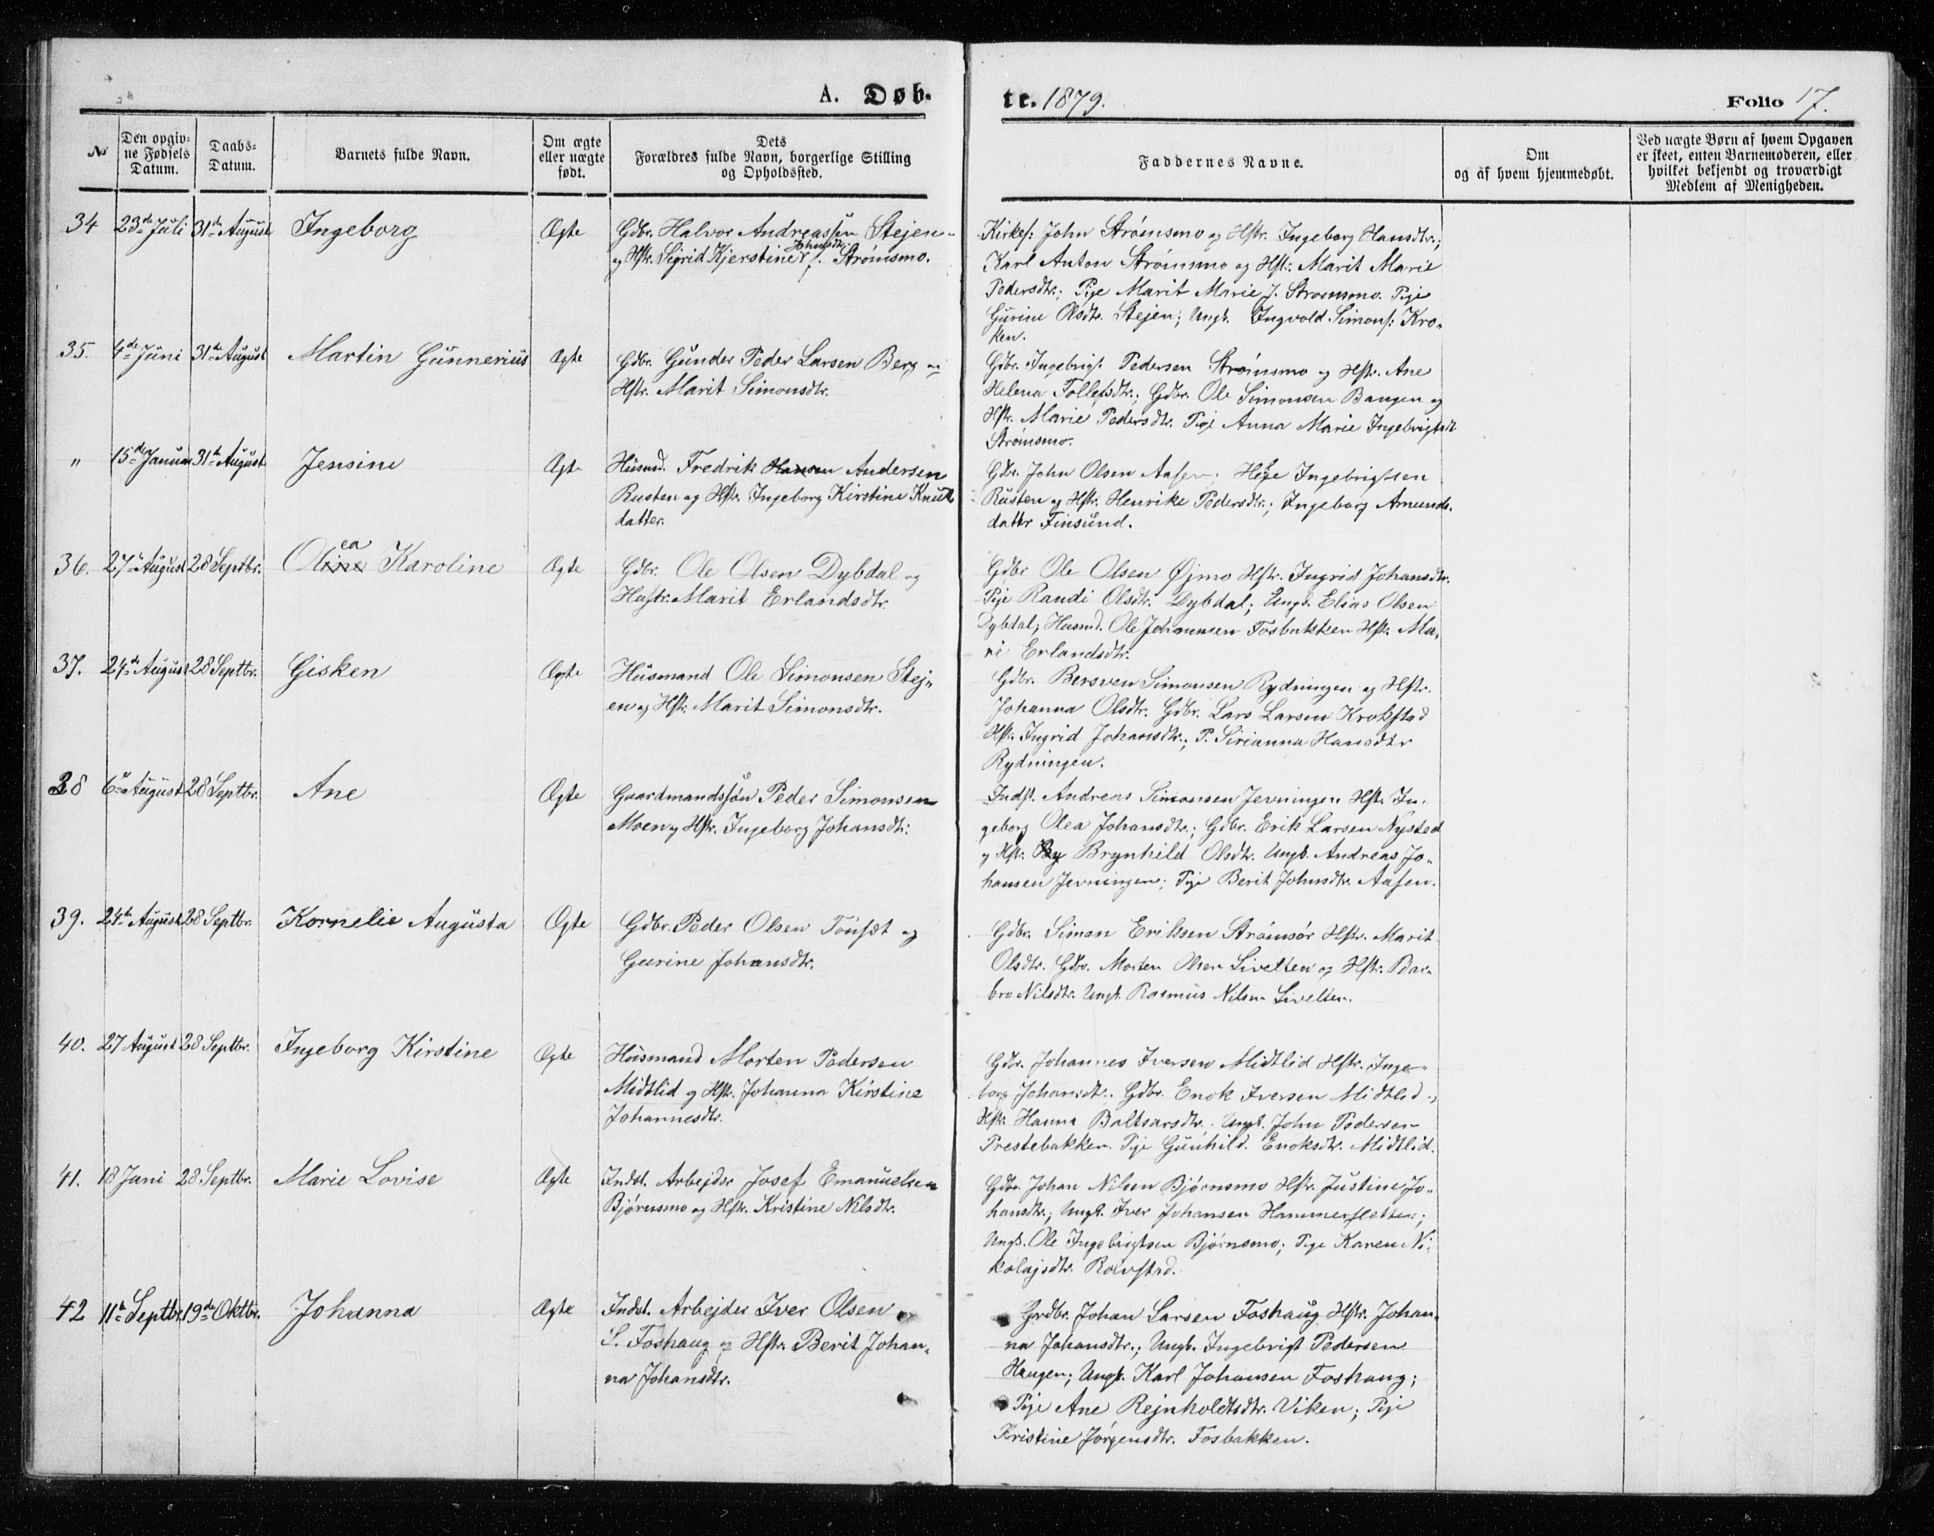 A. Døbte. 1879. Folio 17.
No
Den opgivne Fødsels Datum.
Daabs-Datum.
Barnets fulde Navn.
Om ægte eller uægte født.
Dets Forældres fulde Navn, borgerlige Stilling og Opholdssted.
Faddernes Navne.
Om og af hvem hjemmedøbt.
Ved uægte Børn af hvem Opgaven er skeet, enten Barnemoderen, eller hvilket bekjendt og troværdigt Medlem af Menigheden.
34 23de Juli 31te August Ingeborg Ægte
Gdbr. Halvor Andreassen Stejen
og Hstr. Sigrid Kjerstine Johnsdtr. Strømsmo.
Kirkes: John Strømsmo og Hstr. Ingeborg Hansdtr.;
Karl Anton Strømsmo og Hstr. Marit Marie
Pedersdtr.; Pige Marit Marie J. Strømsmo. Pige
Gurine Olsdtr. Stejen; Ungk. Ingvold Simons: Kro-
ken.
35. 4de Juni 31te August Martin Gunnerius Ægte
Gdbr. Gunder Peder Larsen Berg og
Hstr. Marit Simonsdtr.
Gdbr. Ingebrigt Pedersen Strømsmo og Hstr. Ane
Helena Tollefsdtr.; Gdbr. Ole Simonsen Bangen og
Hstr. Marie Pedersdtr. Pige Anna Marie Ingebrigtsdtr
Strømsmo.
" 15de Januar 31te August Jensine Ægte
Husmd. Fredrik Hansen Andersen
Rusten og Hstr. Ingeborg Kirstine Knuts
datter.
Gdbr. John Olsen Aasen; Helge Ingebrigtsen
Rusten og Hstr. Henrike Pedersdtr.; Ingeborg Amunds-
datter Finsund.
36. 27de August 28 Septbr. Oline ea Karoline Ægte
Gdbr. Ole Olsen Dybdal og
Hustr. Marit Erlandsdtr.
Gdbr Ole Olsen Øjmo Hstr. Ingrid Johansdtr.
Pige Randi Olsdtr. Dybdal; Ungk. Elias Olsen
Dybdal; Husmd. Ole Johannesen Fosbakken Hstr. Ma-
ri Erlandsdtr.
37. 24de August 28 Septbr. Gisken Ægte
Husmand Ole Simonsen Stej-
en og Hstr. Marit Simonsdtr.
Gdbr. Bersven Simonsen Rydningen og Hstr.
Johanna Olsdtr. Gdbr. Lars Larsen Krokstad
Hstr. Ingrid Johansdtr.; P. Sirianna Hansdtr
Rydningen.
38 6te August 28 Septbr. Ane Ægte
Gaardmandssøn Peder Simonsen
Moen og Hstr. Ingeborg Johansdtr:
Indst. Andreas Simonsen Jevningen Hstr. In-
geborg Olea Johansdtr.; Gdbr. Erik Larsen Nysted
og Hstr. By Brynhild Olsdtr. Ungk. Andreas Jo-
hansen Jevningen; Pige Berit Johnsdtr. Aasen.
39. 24de August 28 Septbr. Kornelie Augusta Ægte
Gdbr. Peder Olsen Tønset og
Gurine Johansdtr.
Gdbr. Simon Eriksen Strømsør Hstr. Marit
Olsdtr. Gdbr. Morten Olsen Sivelten og Hstr. Bar-
bro Nilsdtr. Ungk. Rasmus Nilsen Sivelten.
40. 27 August 28 Septbr. Ingeborg Kirstine Ægte
Husmand Morten Pedersen
Midtlid og Hstr. Johanna Kirstine
Johannesdtr.
Gdbr. Johannes Iversen Midtlid Hstr. Inge-
borg Johansdtr. Gdbr. Enok Iversen Midtlid og
Hstr. Hanna Baltsarsdtr. Ungk. John Pedersen
Prestebakken. Pige Gunhild Enoksdtr. Midtlid.
41. 18 Juni 28 Septbr. Marie Lovise Ægte
Indst. Arbejder Josef Emanuelsen
Bjørnsmo og Hstr. Kristine Nilsdtr.
Gdbr. Johan Nilsen Bjørnsmo Hstr. Justine Jo-
hansdtr.; Ungk. Iver Johansen Hammersletten;
Ungk. Ole Ingebrigtsen Bjørnsmo; Pige Karen Ni-
kolajsdtr. Rolvstad.
42 11te Septbr. 19de Oktbr. Johanna Ægte
Indst. Arbejder Iver Olsen
S. Foshaug og Hstr. Berit Johan-
na Johansdtr.
Grdbr. Johan Larsen Foshaug Hstr. Johan-
na Johansdtr.; Ungk. Ingebrigt Pedersen
Haugen; Ungk. Karl Johansen Foshaug;
Pige Ane Rejnholdtsdtr. Viken; Pige
Kristine Jørgensdtr. Fosbakken.